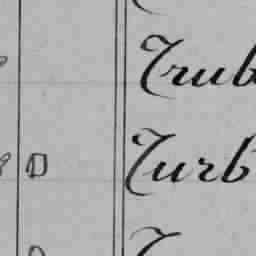 Trub
D Turb